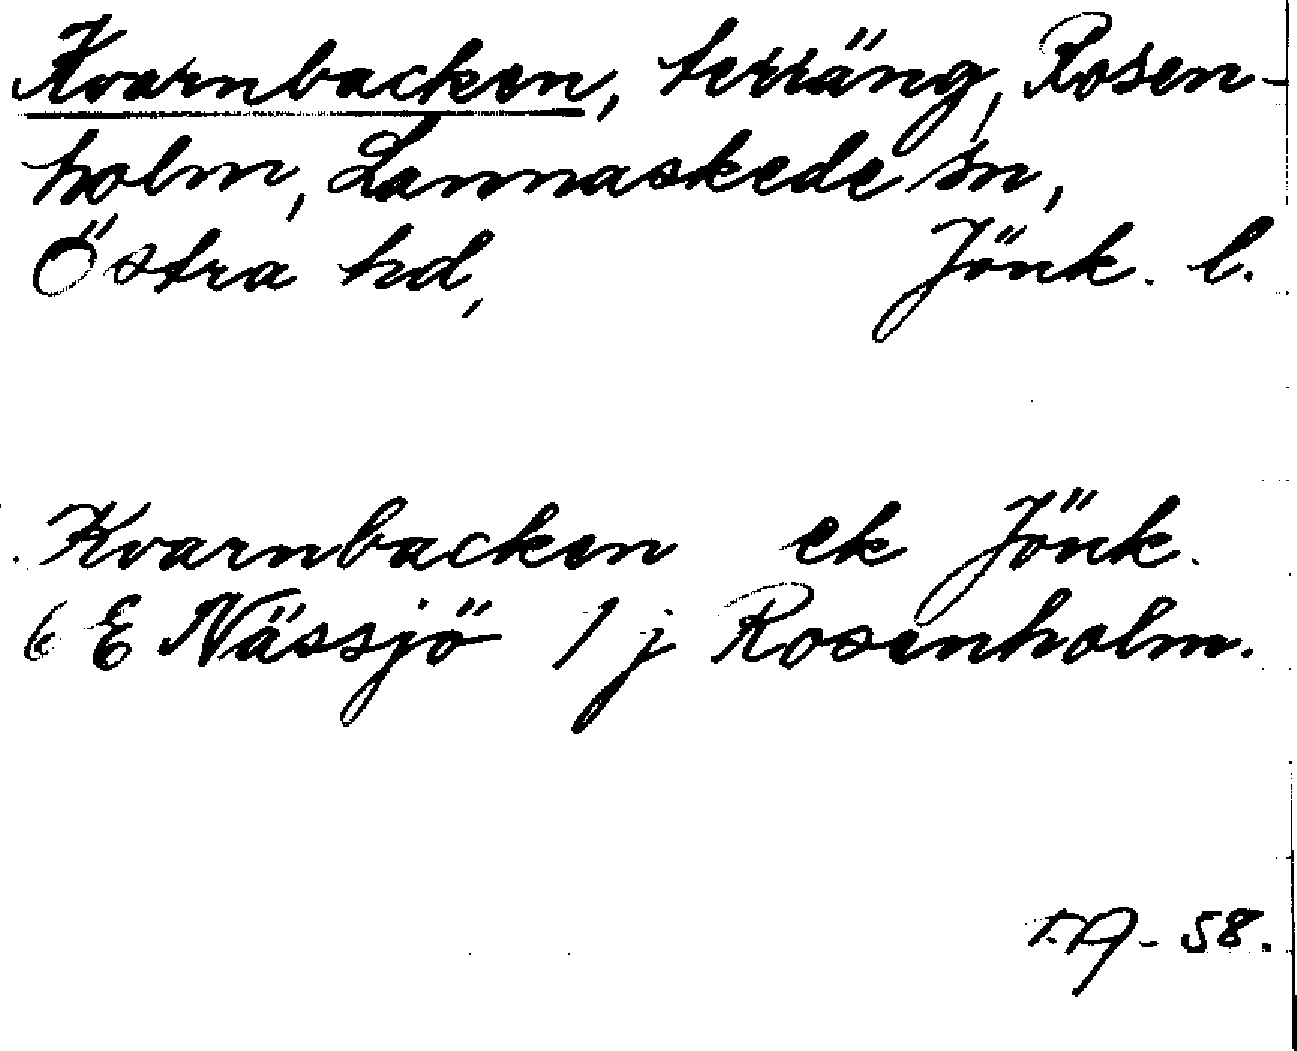 Kvarnbacken, terräng, Rosen-
holm, Lannaskede sn,
Östra hd, Jönk. l.
Kvarnbacken ek Jönk.
6 E Nässjö 1 j Rosenholm.
58.